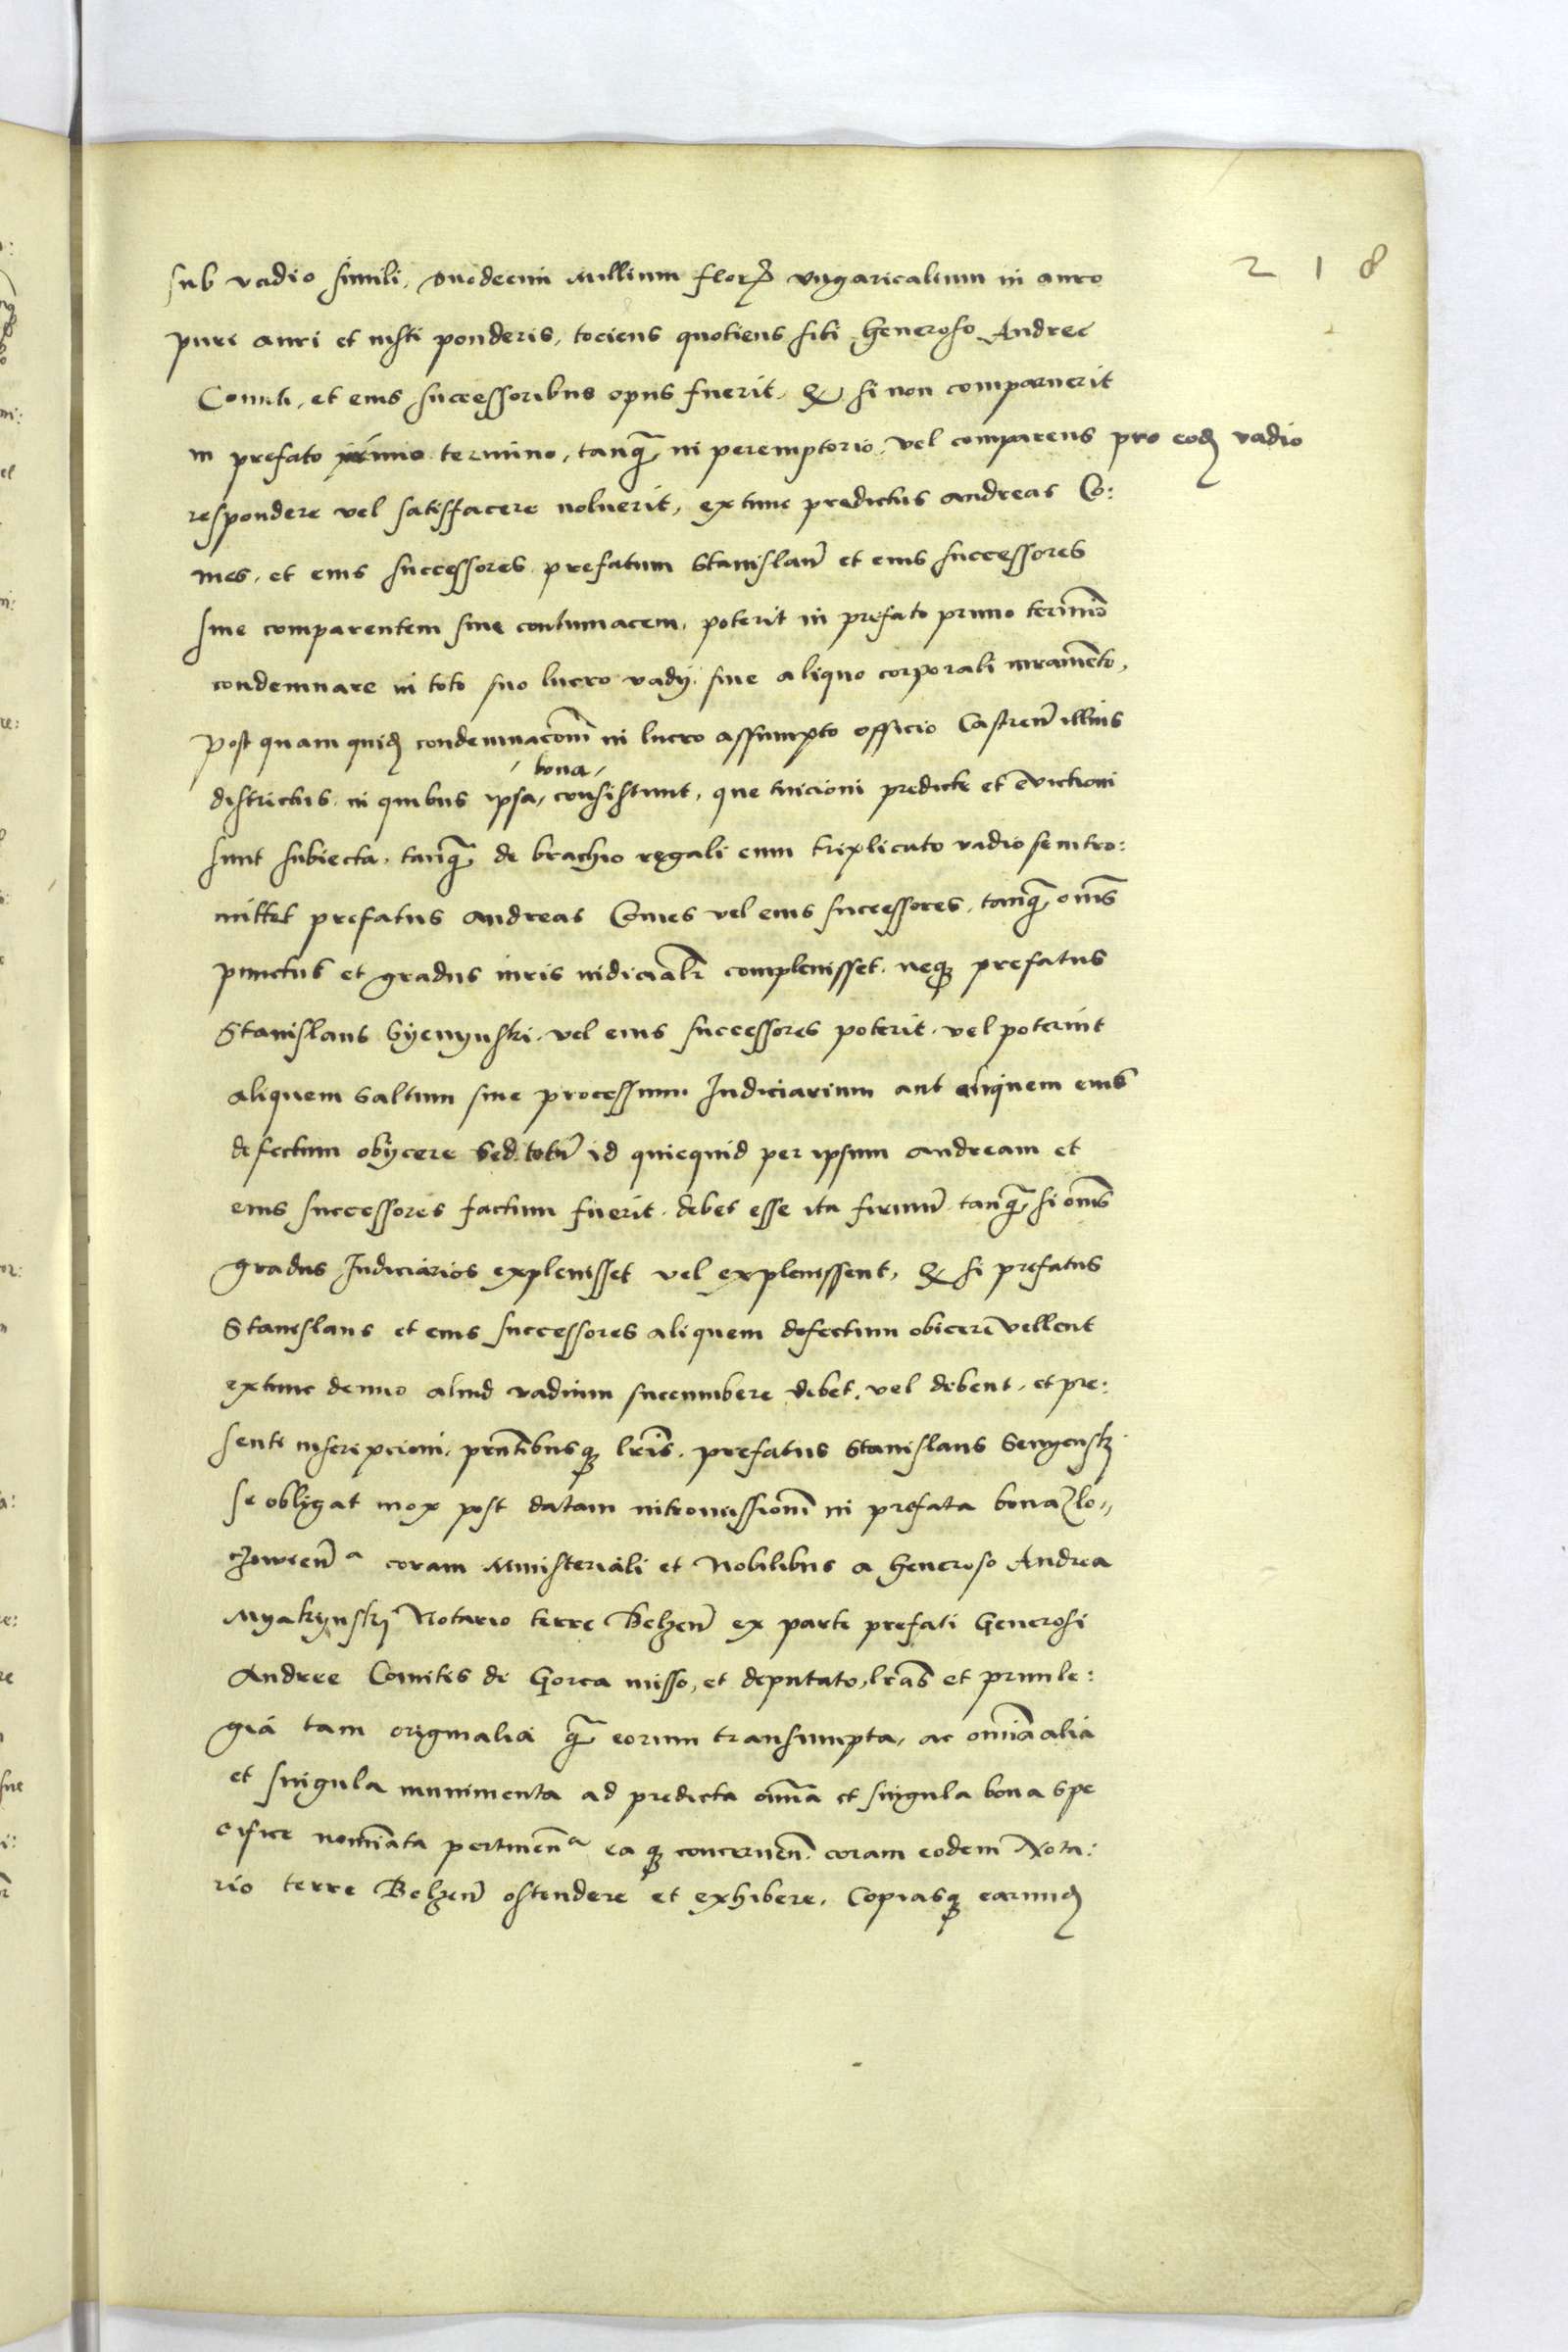 218
sub vadio simili, duodecim Millium floꝝ vngaricalium in auro
puri auri et iusti ponderis, tociens quotiens sibi Generoso Andree
Comiti, et eius successoribus opus fuerit, Et si non comparuerit
in prefato primo termino, tanqȝ in peremptorio, vel comparens pro eodȝ vadio
respondere vel satisfacere noluerit, extunc predictus Andreas Co:
mes, et eius successores prefatum Stanislau͂ et eius successores
siue comparentem siue contumacem, poterit in prefato primo termi͂o
condemnare in toto suo lucro vadij sine aliquo corporali iurame͂to,
Post quam quidȝ condemnaco͂m in lucro assumpto officio Castren͂ illius
districtus in quibus ipsa, bona, consistunt, que tuicioni predicte et euictioni
sunt subiecta, tanqȝ de brachio regali cum triplicato vadio se intro:
mittet prefatus Andreas Comes vel eius successores, tanqȝ om͂s
punctus et gradus iuris iudicialr͂ compleuisset, neqȝ prefatus
Stanislaus Syenynski vel eius successores poterit vel poterint
aliquem Saltum siue processum Iudiciarium aut aliquem eius
defectum obijcere Sed totu͂ id quicquid per ipsum Andream et
eius successores factum fuerit, debet esse ita firmu͂ tanqȝ si om͂s
gradus Iudiciarios expleuisset vel expleuissent, Et si prefatus
Stanislaus et eius successores aliquem defectum obicere vellent
extunc denuo aliud vadium succumbere debet, vel debent, et pre:
senti inscripcioni, pn͂tibusqȝ lr͂is, prefatus Stanislaus Senyenskj
se obligat mox post datam intromissione͂ in prefata bona Zlo,,
czowien͂a coram Ministeriali et Nobilibus a Generoso Andrea
Myakynskj Notario terre Belzen͂ ex parte prefati Generosi
Andree Comitis de Gorca misso, et deputato, lr͂as et priuile:
gia tam originalia qȝ eorum transumpta, ac omnia alia
et singula munimenta ad predicta om͂ia et singula bona spe
cifice nomi͂ata pertinen͂a eaqȝ concernen͂ coram eodem Nota:
rio terre Belzen͂ ostendere et exhibere, Copiasqȝ earundȝ